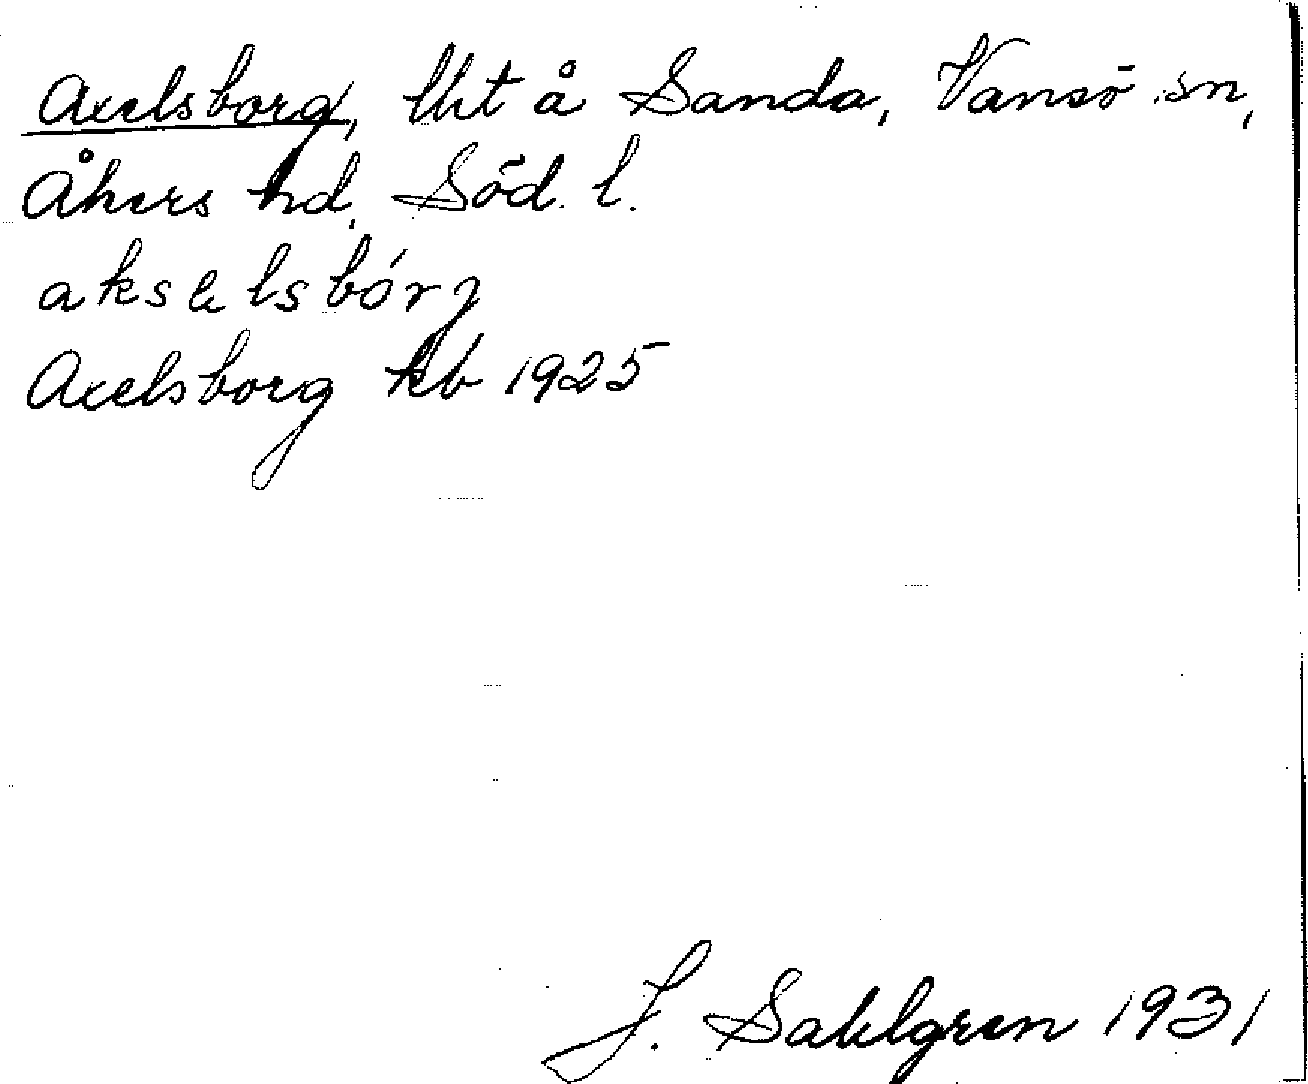 Axelsborg, lht å Sanda, Vansö sn,
Åkers hd, Söd. l.
aksəlsbórj
Axelsborg kb 1925
J. Sahlgren 1931